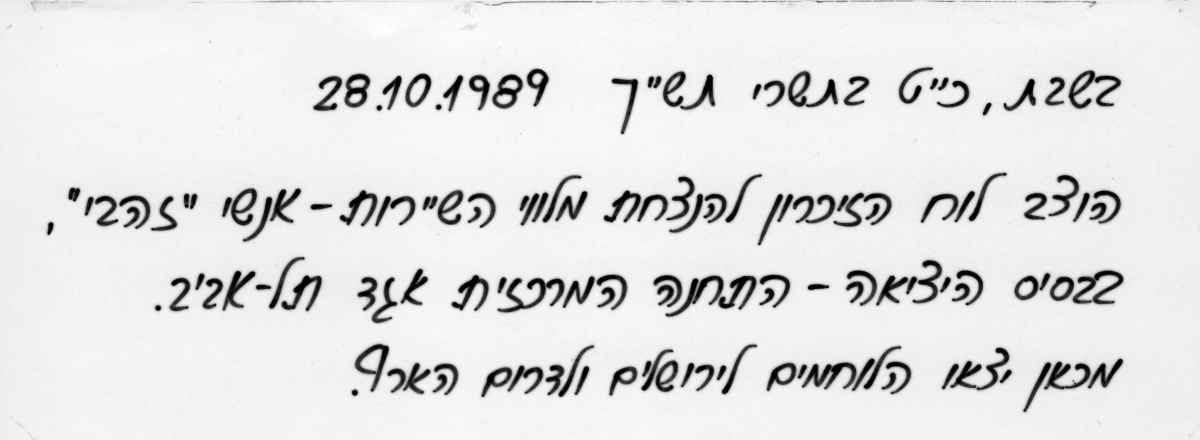 בשבת, כ"ט בתשרי תש"ך 28.10.1989
הוצב לוח הזיכרון להנצחת מלווי השיירות - אנשי "זהבי",
בבסיס היציאה - התחנה המרכזית אגד תל-אביב.
מכאן יצאו הלוחמים לירושלים ולדרום הארץ.